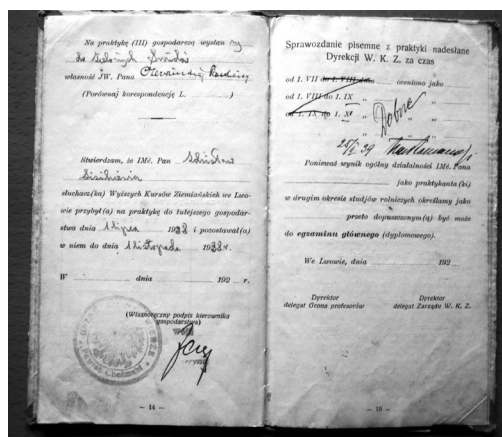 Na praktykę (III) gospodarczą wysłan y
do
własność JW. Pana
(Porównaj korespondencję L. )
Stwierdzam, że IMć. Pan Zdzisław
słuchacz(ka) Wyższych Kursów Ziemiańskich we Lwo-
wie przybył(a) na praktykę do tutejszego gospodar-
stwa dnia 1 lipca 1938 i pozostawał(a)
w niem do dnia 1 listopada 1938 r.
W dnia 192 r.
(Własnoręczny podpis kierownika
gospodarstwa)
— 14 —
Sprawozdanie pisemne z praktyki nadesłane
Dyrekcji W. K. Z. za czas
od 1. VII do 1. VIII oceniono jako
od 1. VIII do 1. IX " "
od 1. IX do 1. XI " "
Dobrze
25/I 39
Ponieważ wynik ogólny działalności IMć. Pana
jako praktykanta(ki)
w drugim okresie studjów rolniczych określamy jako
przeto dopuszczonym(ą) być może
do egzaminu głównego (dyplomowego).
We Lwowie, dnia 192
Dyrektor
delegat Grona profesorów
Dyrektor
delegat Zarządu W. K. Z.
— 15 —